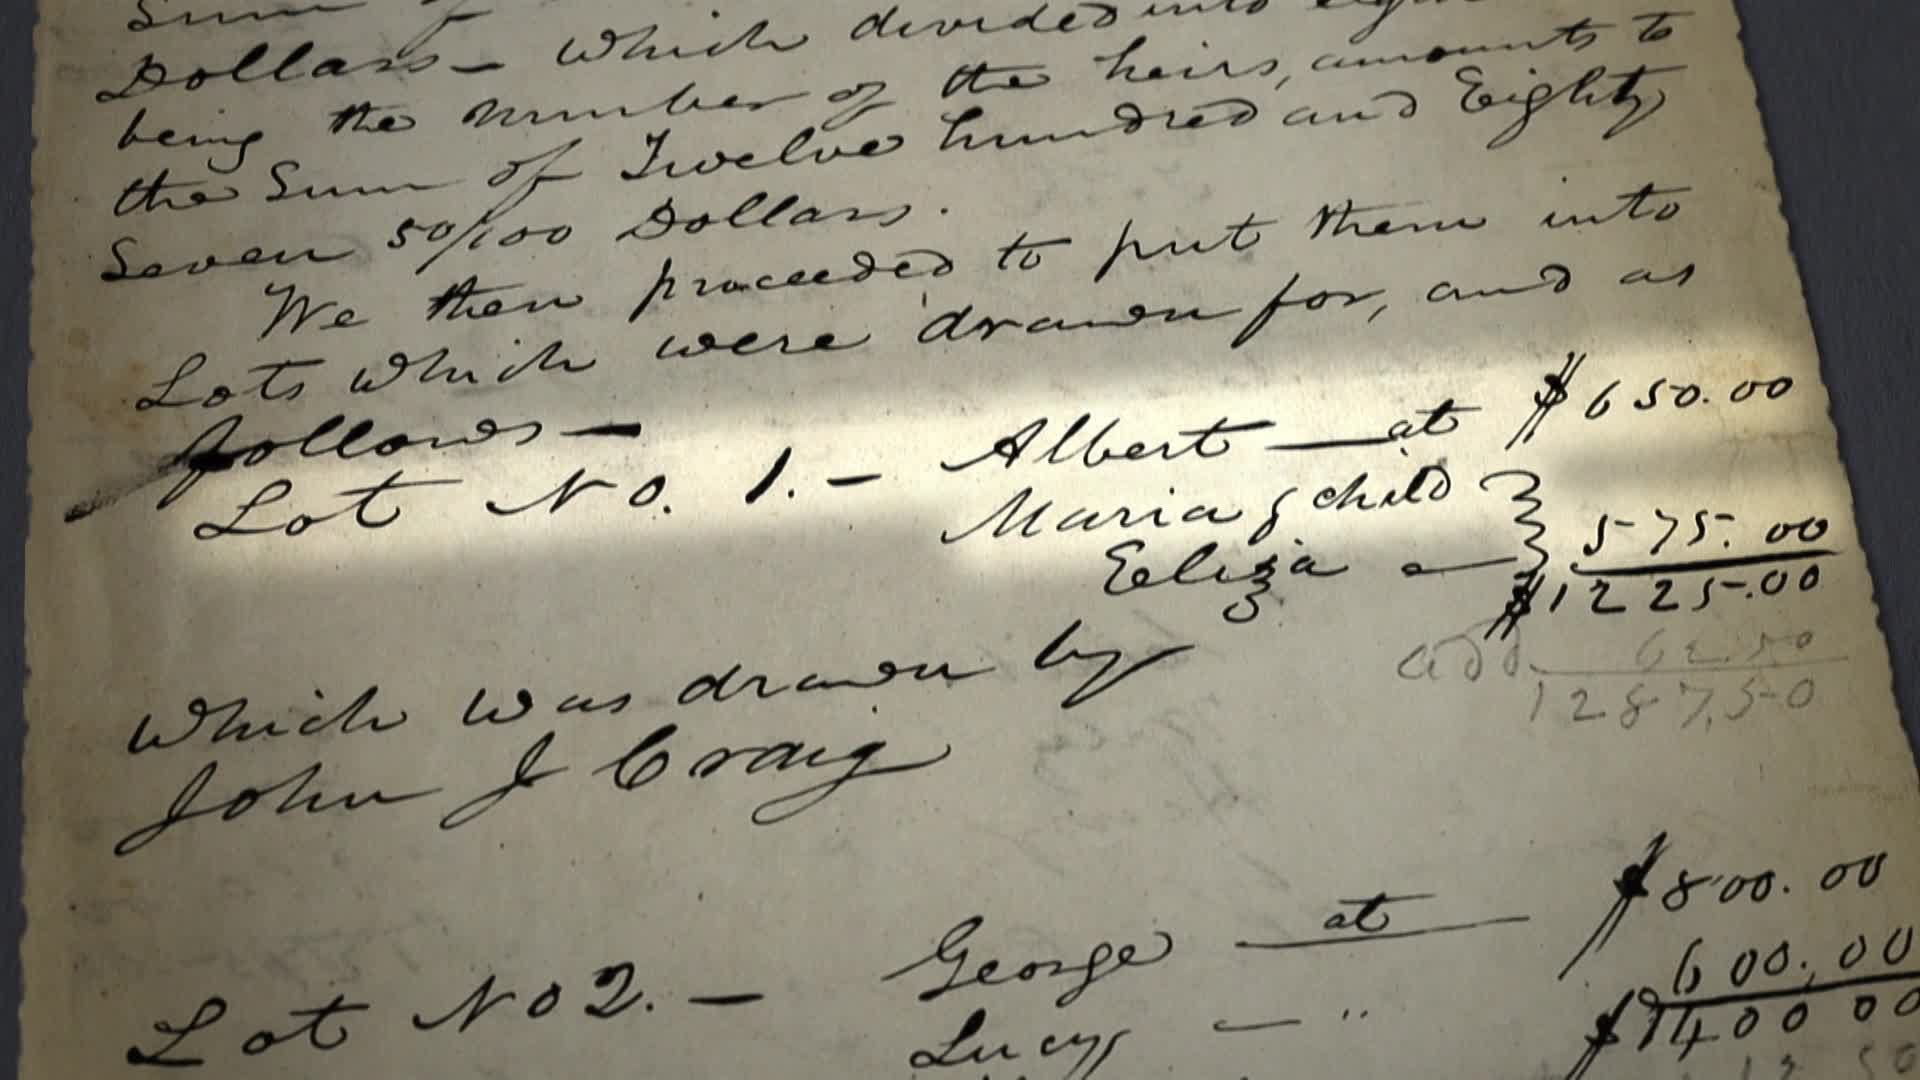 Sum of
Dollars – which divided into eight
being the number of the heirs, amounts to
the Sum of Twelve hundred and Eighty
Seven 50/100 Dollars.
We then proceeded to put them into
Lots which were drawn for, and as
follows –
Lot No. 1. – Albert — at $650.00
Maria & child }
Eeliza — } 575.00
$1225.00
add 62.50
1287,50
which was drawn by
John J Craig
Lot No 2. – George at $800.00
Lucy — " 600.00
$1400 00